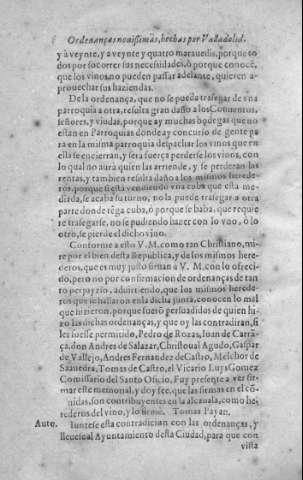 Ordenanças nouissimas, hechas por Valladolid.
y à veynte, y a veynte y quatro marauedis, porque to
dos por socorrer sus necessidades, ò porque conocē,
que los vinos no pueden passar adelante, quieren a-
prouechar sus haziendas.
De la ordenança, que no se pueda trasegar de vna
parroquia a otra, resulta gran daño a los Conuentos,
señores, y viudas, porque ay muchas bodegas que no
estan en Parroquias donde ay concurso de gente pa
ra en la misma parroquia despachar los vinos que en
ella se encierran, y sera fuerça perderse los vinos, con
lo qual no aura quien las arriende, y se perderan las
rentas, y tambien resulta daño a los mismos herede-
ros, porque si està vendiendo vna cuba que esta me-
dida, se acaba su turno, no la puede trasegar a otra
parte donde tēga cuba, ò porque se baba, que requie
re trasegarse, no se pudiendo hazer con lo vno, ò lo
otro, se pierde el dicho vino.
Conforme a esto V. M. como tan Christiano, mi-
re por el bien desta Republica, y de los mismos here-
deros, que es muy justo siruan a V. M. con lo ofreci-
do, pero no por confirmacion de ordenanças de tan
to perjuyzio, aduirtiendo, que los mismos herede-
ros que se hallaron en la dicha junta, conocen lo mal
que hizieron, porque fuerō persuadidos de quien hi-
zo las dichas ordenanças, y que oy las contradiran, si
les fuesse permitido, Pedro de Rozas, Iuan de Carrā-
ça, don Andres de Salazar, Christoual Agudo, Gaspar
de Vallejo, Andres Fernandez de Castro, Melchor de
Saauedra, Tomas de Castro, el Vicario Luys Gomez
Comissario del Santo Oficio, Fuy presente a ver fir-
mar este memorial, y doy fee, que las firmas en el cō-
tenidas, son contribuyentes en la alcauala, como he-
rederos del vino, y lo firmè. Tomas Payan.
Auto. Iuntese esta contradicion con las ordenanças, y
lleuese al Ayuntamiento desta Ciudad, para que con
vista